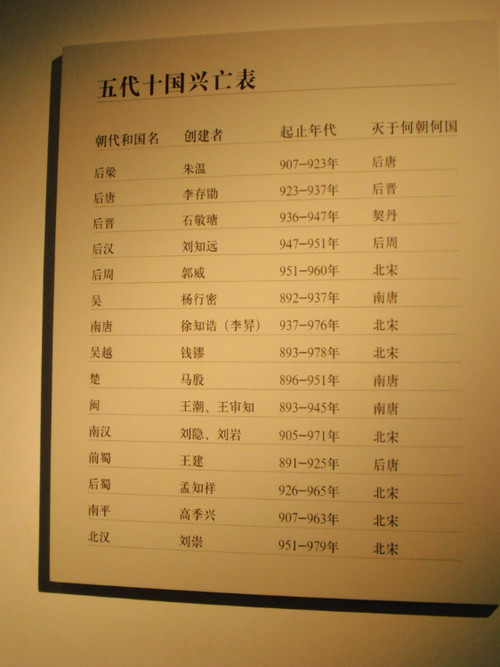 五代十国兴亡表
朝代和国名 创建者 起止年代 灭于何朝何国
后梁 朱温 907-923年 后唐
后唐 李存勖 923-937年 后晋
后晋 石敬瑭 936-947年 契丹
后汉 刘知远 947-951年 后周
后周 郭威 951-960年 北宋
吴 杨行密 892-937年 南唐
南唐 徐知诰（李昪） 937-976年 北宋
吴越 钱镠 893-978年 北宋
楚 马殷 896-951年 南唐
闽 王潮、王审知 893-945年 南唐
南汉 刘隐、刘岩 905-971年 北宋
前蜀 王建 891-925年 后唐
后蜀 孟知祥 926-965年 北宋
南平 高季兴 907-963年 北宋
北汉 刘崇 951-979年 北宋